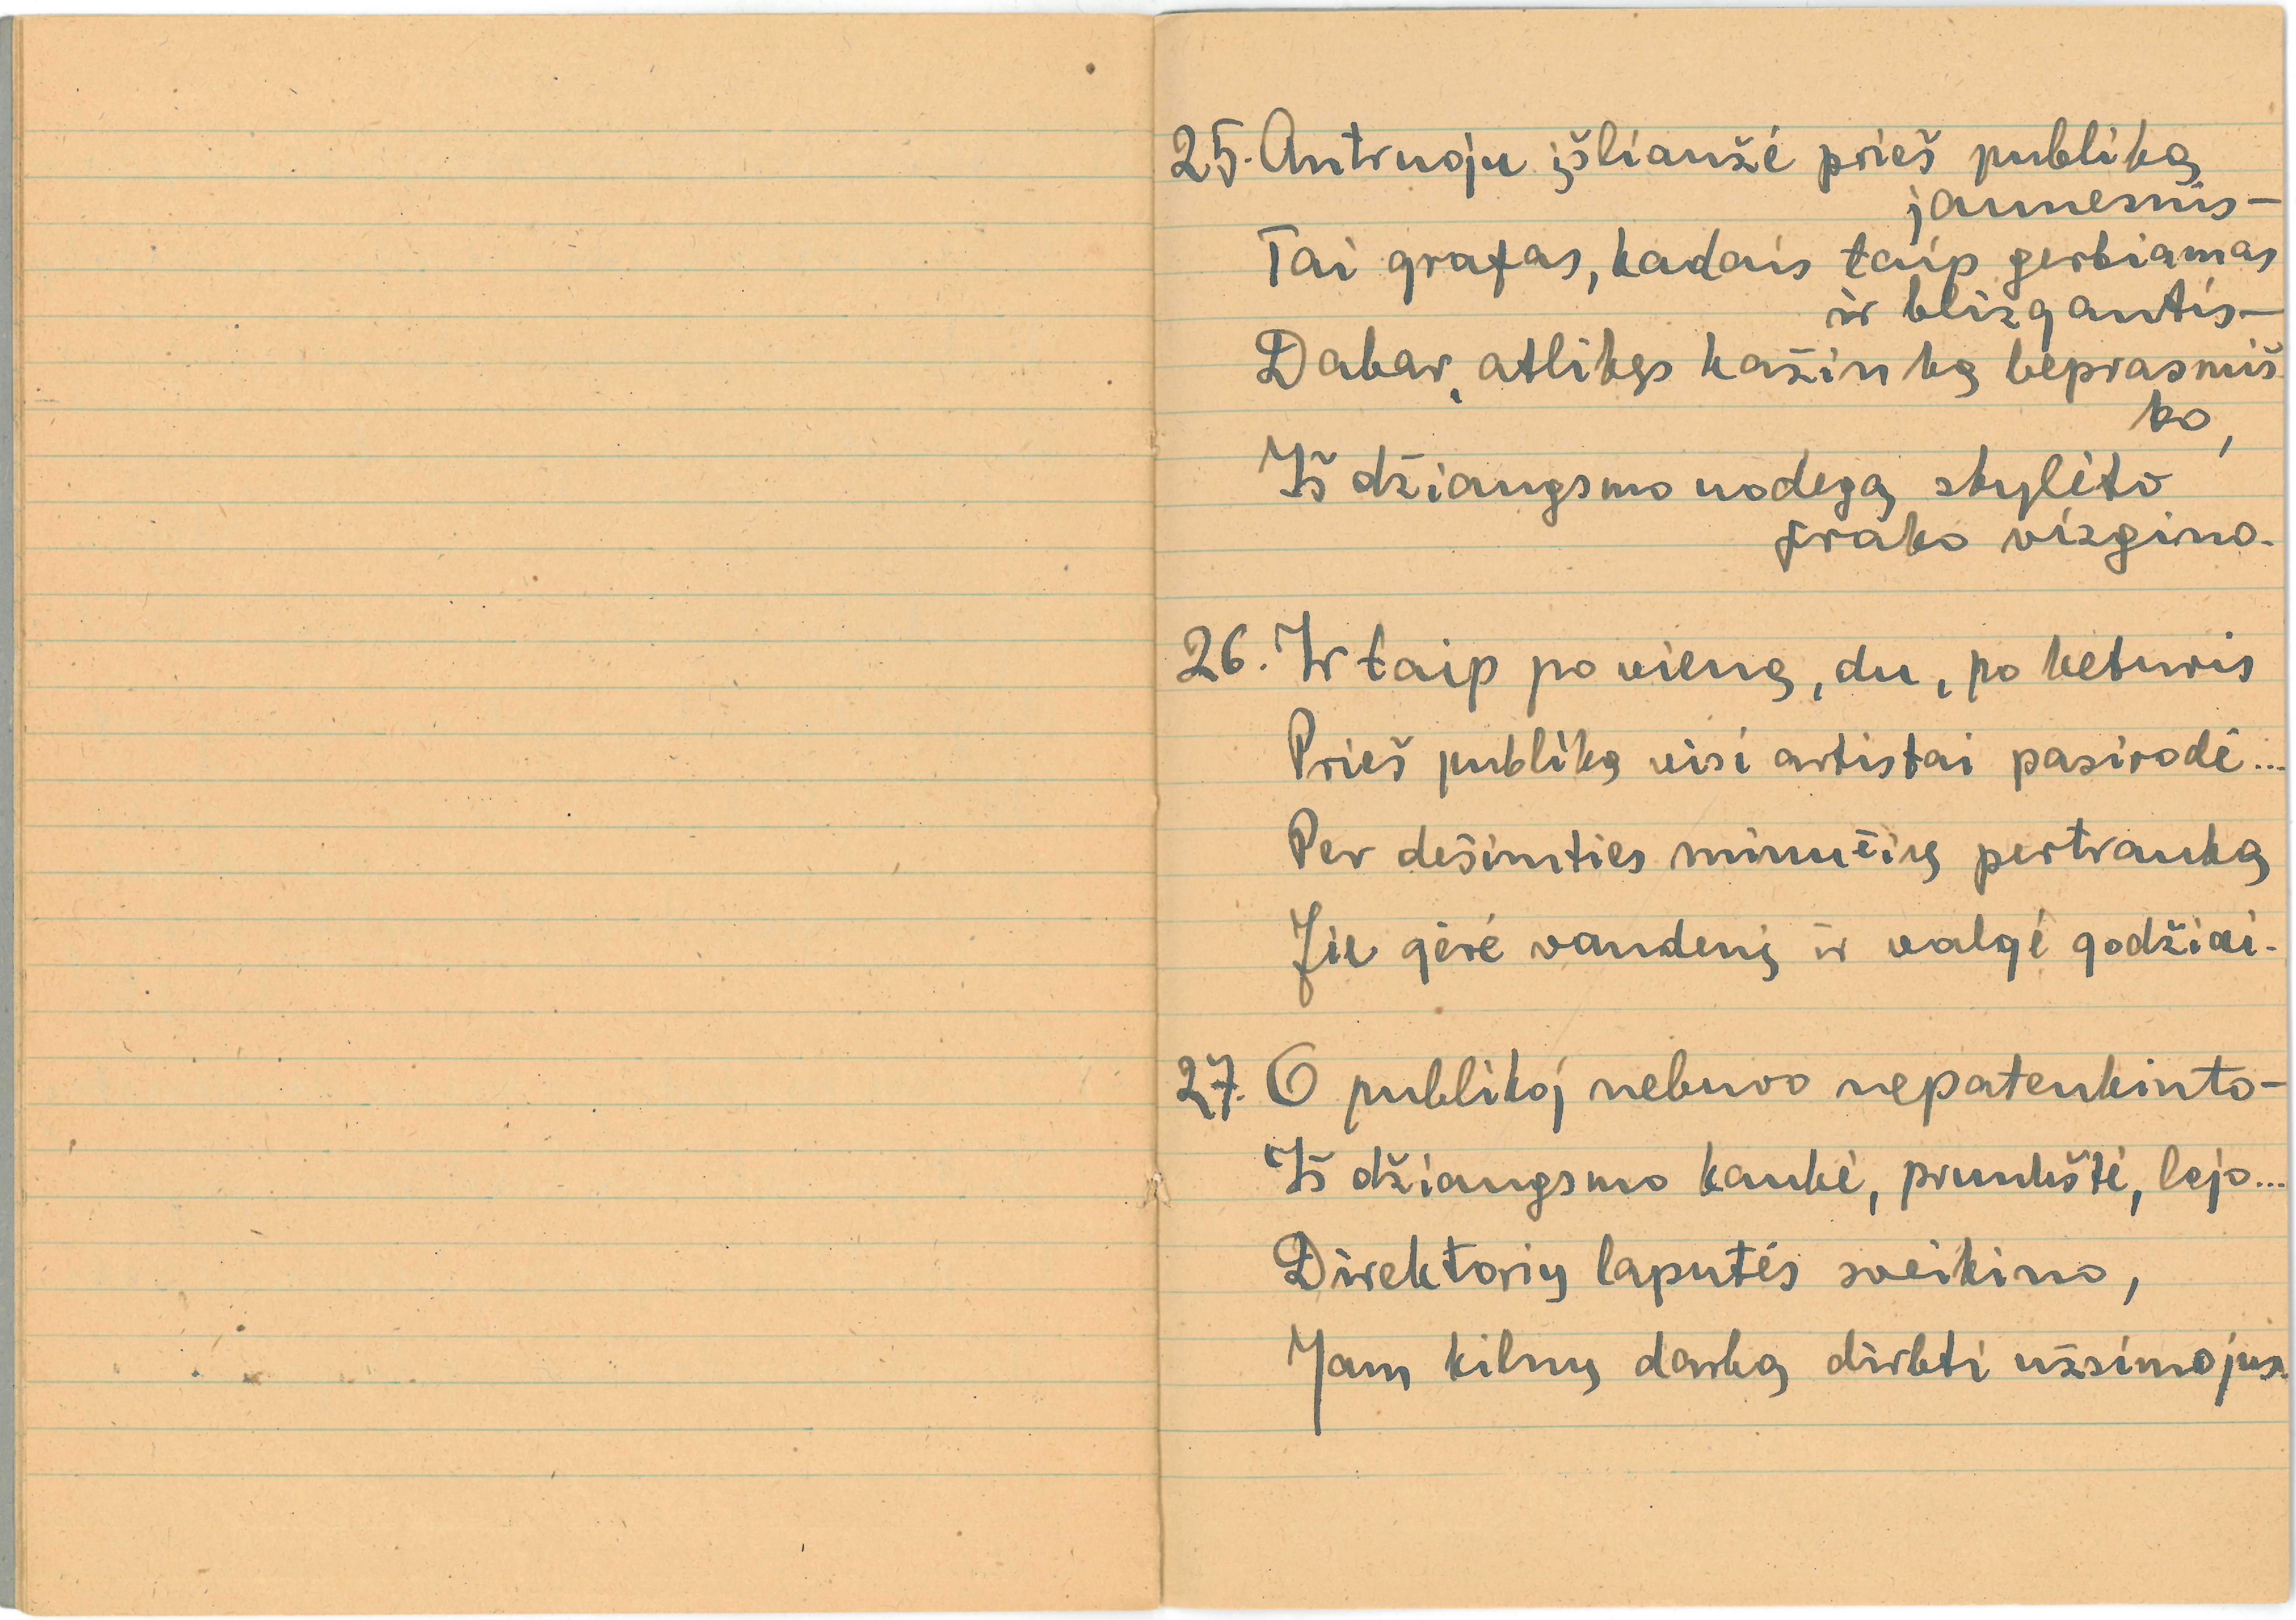 25. Antruoju įšliaužė prieš publiką
jaunesnis—
Tai grafas, kadais taip gerbiamas
ir blizgantis—
Dabar, atlikęs kažin ką beprasmiš
ko,
Iš džiaugsmo uodegą skylėto
frako vizgino.
26. Ir taip po vieną, du, po keturis
Prieš publiką visi artistai pasirodė...
Per dešimties minučių pertrauką
Jie gėrė vandenį ir valgė godžiai.
27. O publikoj nebuvo nepatenkinto—
Iš džiaugsmo kaukė, prunkštė, lojo...
Direktorių laputės sveikino,
Jam kilnų darbą dirbti užsimojus.